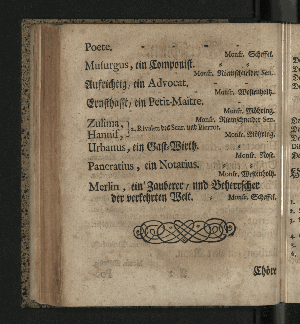 Poete, - - -
Monsr. Scheffel.
Musurgus, ein Componist.
Monsr. Riemschneider Sen.
Aufrichtig, ein Advocat.
Monsr. Westenholtz.
Ernsthafft, ein Petit-Maitre.
Monsr. Möhring.
Zulima, Monsr. Riemschneider Sen.
2. Rivalen des Scar. und Pierrot.
Hannif, Monsr. Möhring.
Urbanus, ein Gast-Wirth.
Monsr.
Pancratius, ein Notarius.
Monsr. Westenholtz.
Merlin, ein Zauberer, und Beherrscher
der verkehrten Welt. Monsr. Scheffel.
Chöre